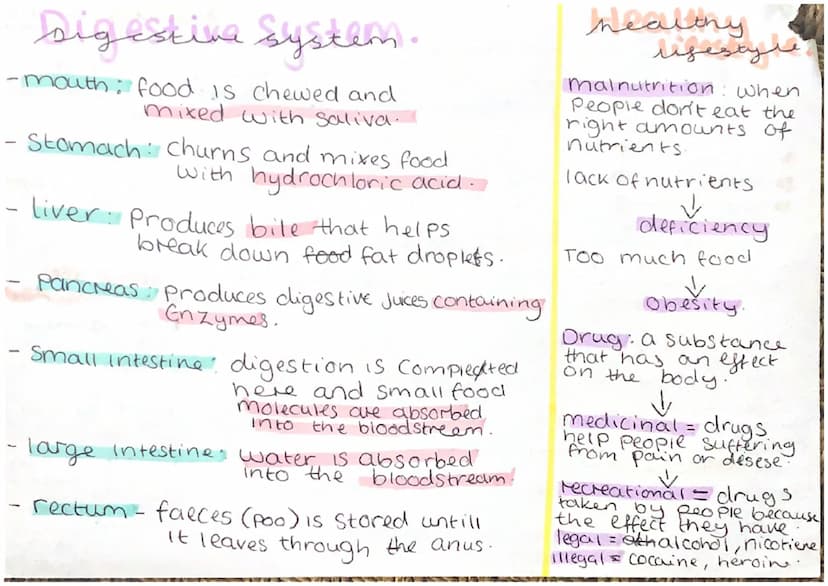 Digestive System.
Digestive System
- mouth: food is chewed and
mixed with saliva.
- Stomach: churns and mixes food
with hydrochloric acid.
- liver: produces bile that helps
break down food fat droplets.
- Pancreas: produces digestive juices containing
Enzymes.
- Small intestine: digestion is completed
here and small food
molecules are absorbed
into the bloodstream.
- large intestine: water is absorbed
into the bloodstream
- rectum - faeces (poo) is stored untill
it leaves through the anus.
Healthy
lifestyle.
healthy
lifestyle
malnutrition: when
people don't eat the
right amounts of
nutrients.
lack of nutrients
↓
deficiency
TOO much food
↓
Obesity.
Drug: a substance
that has an effect
on the body.
↓
medicinal = drugs
help people suffering
from pain or desese.
↓
recreational = drugs
taken by people because
the effect they have.
legal = alcohol, nicotiene
illegal = cocaine, heroin.